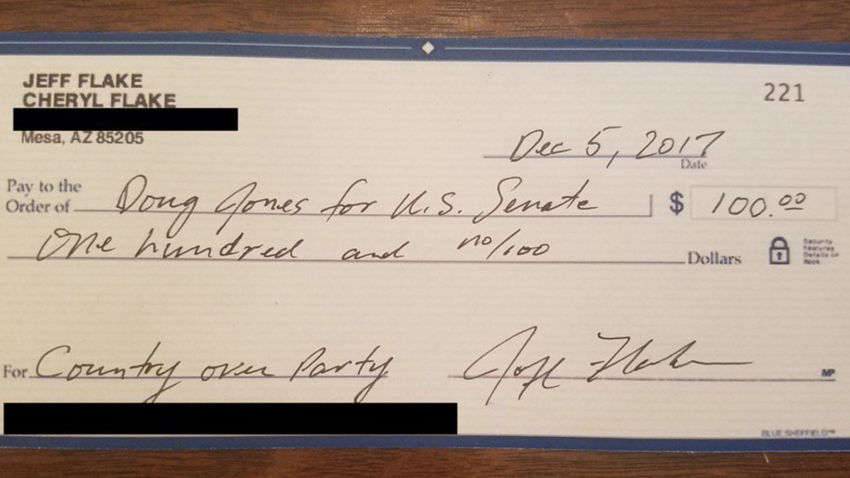 JEFF FLAKE
CHERYL FLAKE
Mesa, AZ 85205
221
Dec 5, 2017
Date
Pay to the
Order of Doug Jones for U.S. Senate $ 100.00
One hundred and no/100 Dollars
Security
Features
Details on
Back
For Country over Party Jeff Flake MP
BLUE SHEFFIELD™